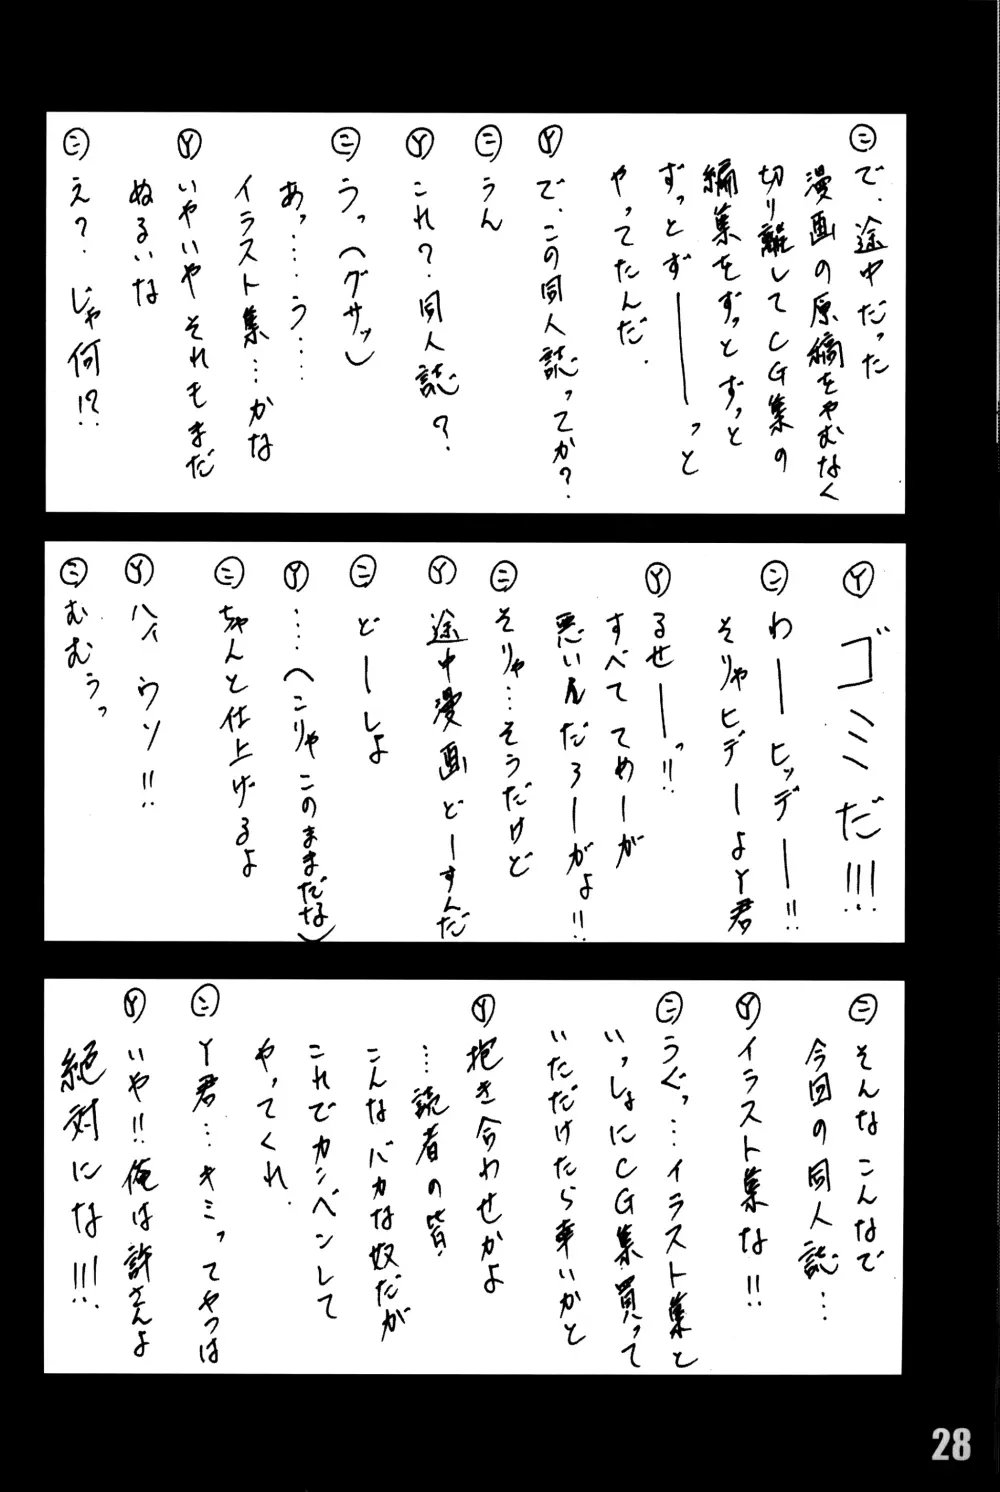 ㊁で、途中だった
漫画の原稿をやむなく
切り離してCG集の
編集をずっとずっと
ずっとずーーーっと
やってたんだ.
Ⓨで、この同人誌ってか?
㊁うん
Ⓨこれ?同人誌?
㊁うっ(グサッ)
あっ……う……
イラスト集…かな
Ⓨいやいやそれもまだ
ぬるいな
㊁え?じゃ何!?
Ⓨゴミだ!!!
㊁わーーヒッデー!!
そりゃヒデーよY君
Ⓨるせーーっ!!
すべててめーが
悪いんだろーがよ!!
㊁そりゃ…そうだけど
Ⓨ途中漫画どーすんだ
㊁どーしよ
Ⓨ……(こりゃこのままだな)
㊁ちゃんと仕上げるよ
Ⓨハイウソ!!
㊁むむぅっ
㊁そんなこんなで
今回の同人誌…
Ⓨイラスト集な!!
㊁うぐっ…イラスト集と
いっしょにCG集買って
いただけたら幸いかと
Ⓨ抱き合わせかよ
…読者の皆、
こんなバカな奴だが
これでカンベンして
やってくれ.
㊁Y君…キミってやつは
Ⓨいや!!俺は許さんよ
絶対にな!!!
28